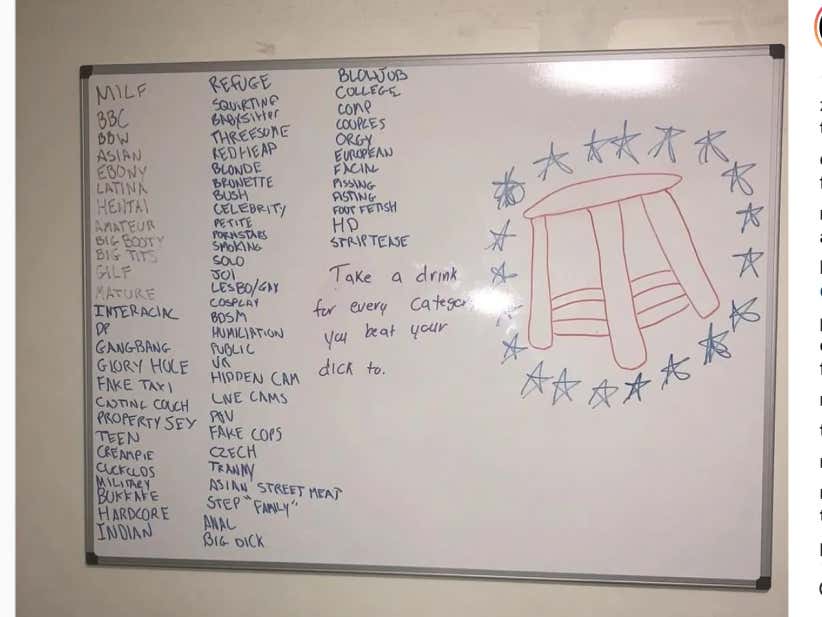 MILF
BBC
BBW
ASIAN
EBONY
LATINA
HENTAI
AMATEUR
BIG BOOTY
BIG TITS
GILF
MATURE
INTERACIAL
DP
GANGBANG
GLORY HOLE
FAKE TAXI
CASTING COUCH
PROPERTY SEX
TEEN
CREAMPIE
CUCKOLDS
MILITARY
BUKKAKE
HARDCORE
INDIAN
REFUGE
SQUIRTING
BABYSITTER
THREESOME
REDHEAD
BLONDE
BRUNETTE
BUSH
CELEBRITY
PETITE
PORNSTARS
SMOKING
SOLO
JOI
LESBO/GAY
COSPLAY
BDSM
HUMILIATION
PUBLIC
VR
HIDDEN CAM
LIVE CAMS
POV
FAKE COPS
CZECH
TRANNY
ASIAN STREET MEAT
STEP "FAMILY"
ANAL
BIG DICK
BLOWJOB
COLLEGE
COMP
COUPLES
ORGY
EUROPEAN
FACIAL
PISSING
FISTING
FOOT FETISH
HD
STRIPTEASE
Take a drink
for every categor
you beat your
dick to.